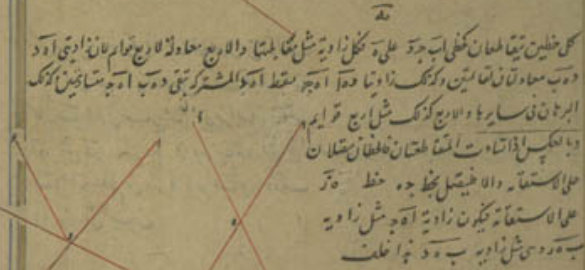 يه
كل خطين يتقاطعان كخطى اب جد على ه فكل زاوية مثل مقابلتها والاربع معادلة لاربع قوائم لان زاويتى اه د
د ه ب معادلتان لقائمتين وكذلك زاويتا د ه ا اه ج يسقط اه د المشتركه تبقى د ه ب اه ج متساويتين كذلك
البرهان فى سايرها والاربع كذلك مثل اربع قوايم
وبالعكس اذا تساوت المتقاطعتان فالخطان متصلان
على الاستقامه والا فليتصل بخط جه خط ه ز
على الاستقامة فيكون زاوية اه ج مثل زاوية
ب ه ز وهى مثل زاوية ب ه د هذا خلف